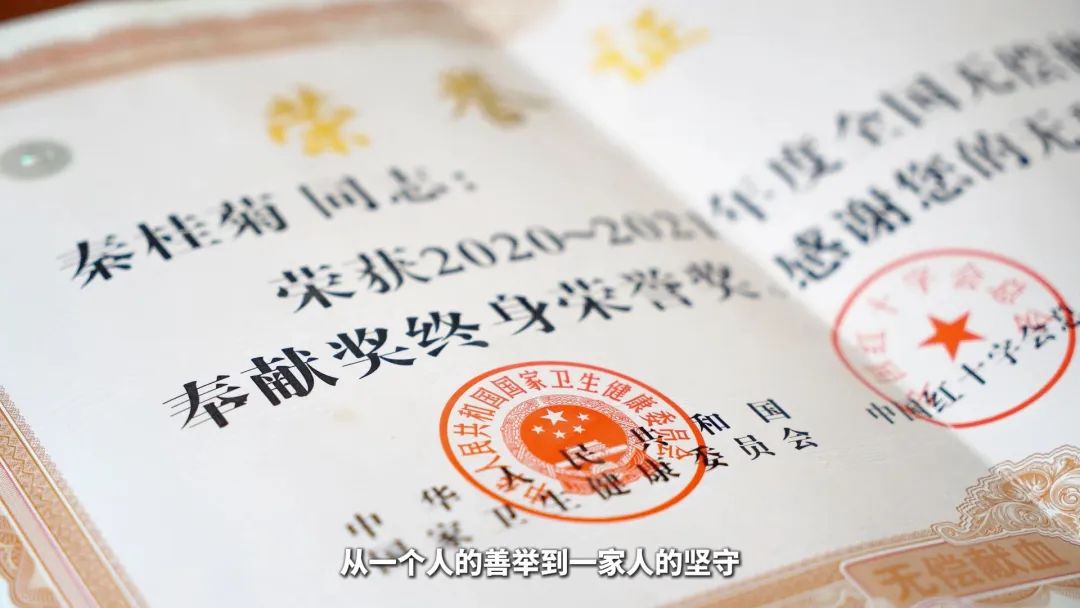 荣誉证
秦桂菊 同志：
荣获2020~2021年度全国无偿献
奉献奖终身荣誉奖，感谢您的无
中华人民共和国国家卫生健康委员会
中国红十字会总
中华人民共和国
国家卫生健康委员会
中国红十字会总
无偿献血
从一个人的善举到一家人的坚守